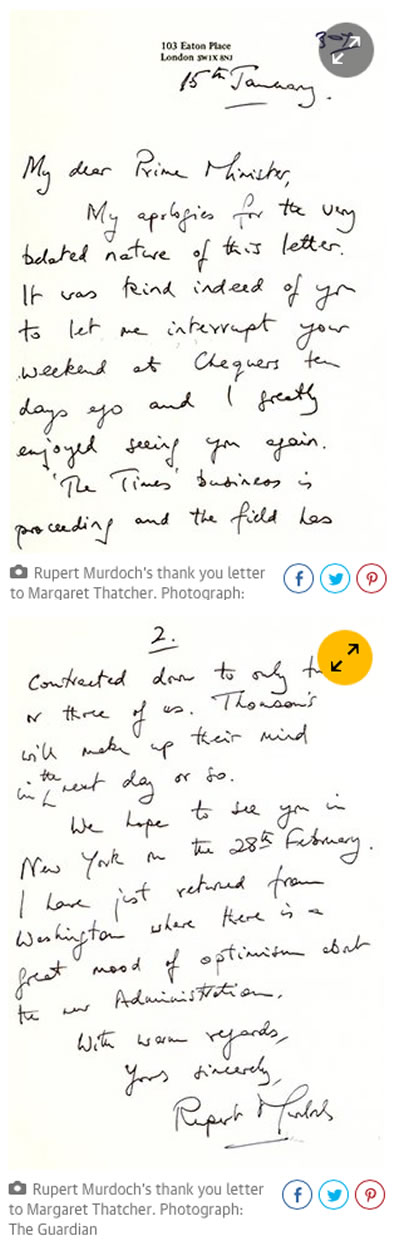 103 Eaton Place
London SW1X 8NJ
15th January.
My dear Prime Minister,
My apologies for the very
belated nature of this letter.
It was kind indeed of you
to let me interrupt your
weekend at Chequers ten
days ago and I greatly
enjoyed seeing you again.
'The Times' business is
proceeding and the field has
Rupert Murdoch's thank you letter
to Margaret Thatcher. Photograph:
2.
contracted down to only
or three of us. Thomson's
will make up their mind
in the next day or so.
We hope to see you in
New York on the 28th February.
I have just returned from
Washington where there is a
great mood of optimism about
the new Administration.
With warm regards,
Yours sincerely,
Rupert Murdoch
Rupert Murdoch's thank you letter
to Margaret Thatcher. Photograph:
The Guardian